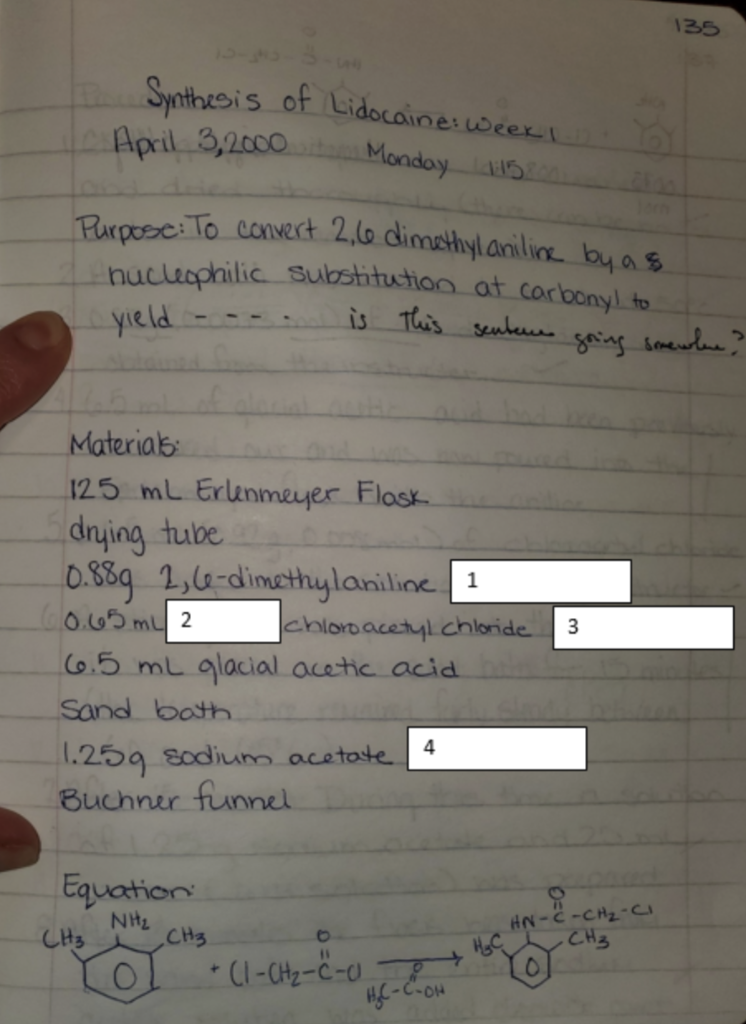 135
Synthesis of Lidocaine: Week 1
April 3, 2000 Monday 1:15
Purpose: To convert 2,6 dimethylaniline by a s
nucleophilic substitution at carbonyl to
yield - - - - . is this sentence going somewhere?
Materials:
125 mL Erlenmeyer Flask
drying tube
0.88g 2,6-dimethylaniline 1
0.65 mL 2 chloroacetyl chloride 3
6.5 mL glacial acetic acid
Sand bath
1.25g sodium acetate 4
Buchner funnel
Equation:
CH3 NH2 CH3 + Cl-CH2-C-Cl O H3C-C-OH O H3C HN-C-CH2-Cl O CH3